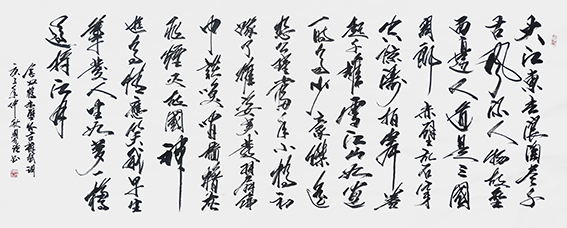 大江東去浪淘盡千
古風流人物故壘
西邊人道是三國
周郎赤壁亂石穿
空驚濤拍岸卷
起千堆雪江山如畫
一時多少豪傑遙
想公瑾當年小喬初
嫁了雄姿英發羽扇綸
巾談笑間檣櫓灰
飛煙滅故國神
遊多情應笑我早生
華發人生如夢一樽
還酹江月
念奴嬌赤壁懷古蘇軾詞